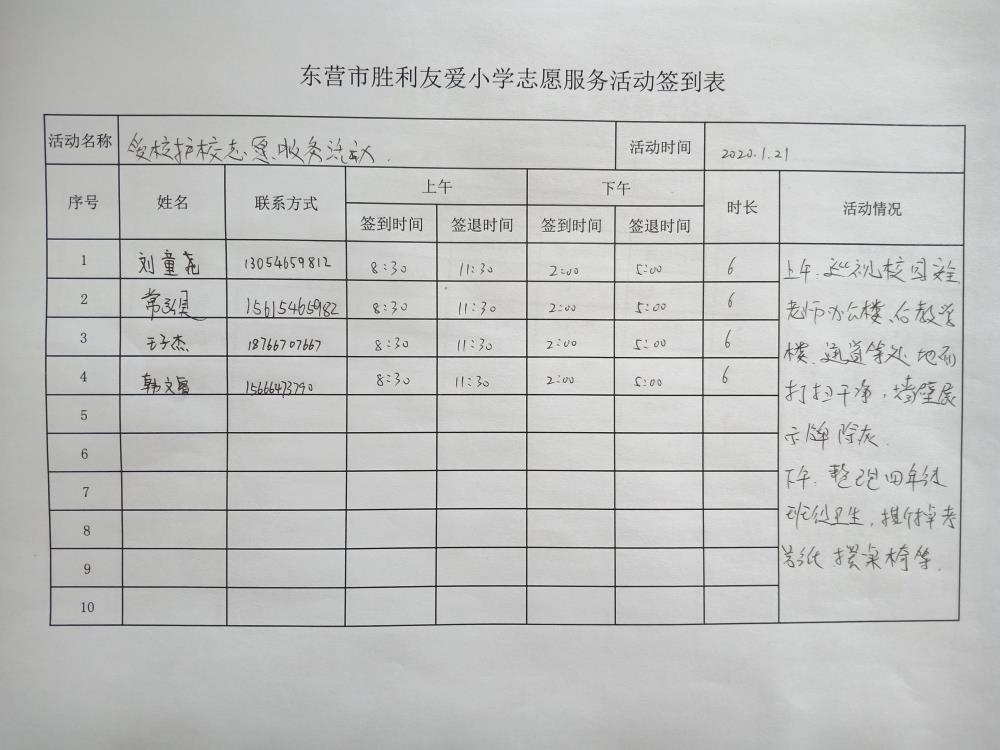 东营市胜利友爱小学志愿服务活动签到表
活动名称 爱校护校志愿服务活动. 活动时间 2020.1.21
序号 姓名 联系方式 上午 下午 时长 活动情况
签到时间 签退时间 签到时间 签退时间
1 刘童尧 13054659812 8:30 11:30 2:00 5:00 6
2 常弘昊 15615465982 8:30 11:30 2:00 5:00 6
3 王子杰 18766707667 8:30 11:30 2:00 5:00 6
4 韩文睿 15666473790 8:30 11:30 2:00 5:00 6
5
6
7
8
9
10
上午:巡视校园安全
老师办公楼、后教学
楼、通道等处地面
打扫干净,墙壁展
示牌除灰.
下午:整理四年级
班级卫生,撕掉考
号纸 摆桌椅等.